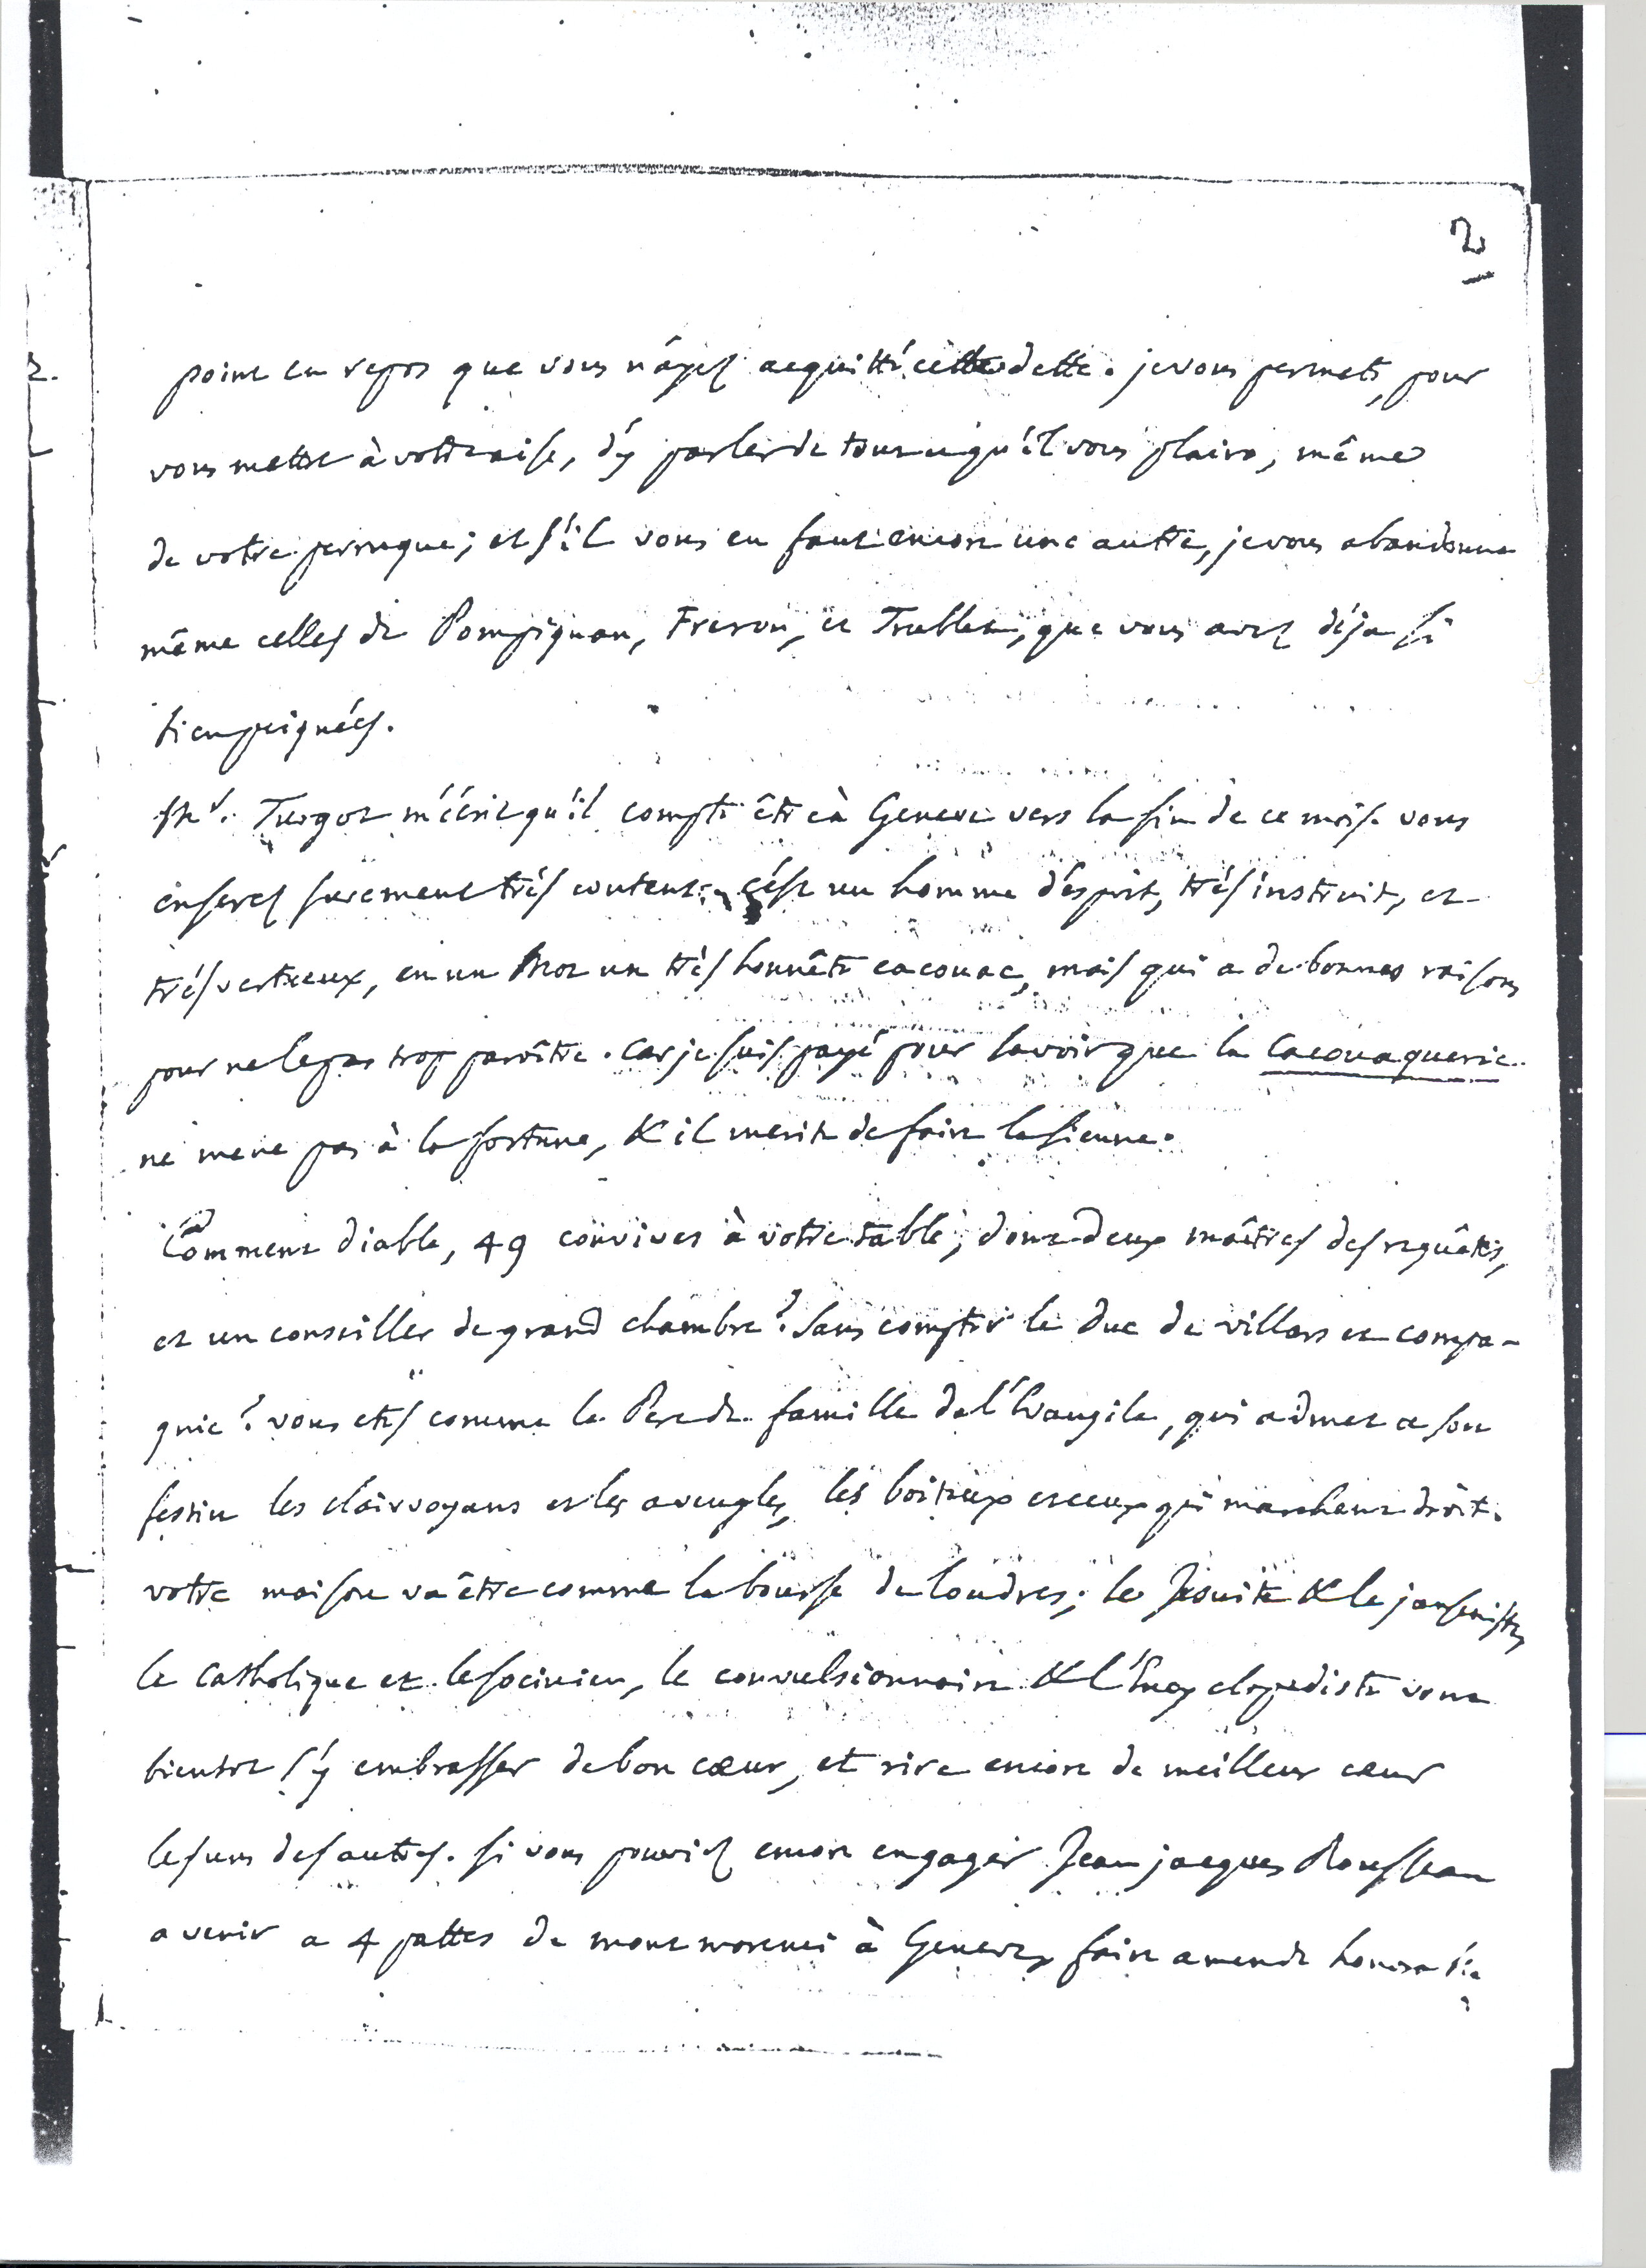 2
point en repos que vous n'ayez acquitté cette dette. je vous permets, pour
vous mettre à votre aise, d'y parler de tout ce qu'il vous plaira, même
de votre perruque; et s'il vous en faut encore une autre, je vous abandonne
même celles de Pompignan, Freron, et Trublet, que vous avez déja si
bien peignées.
Mr. Turgot m'écrit qu'il compte être à Geneve vers la fin de ce mois. vous
en serez surement très content; c'est un homme d'esprit, très instruit, et
très vertueux, en un mot un très honnête cacouac, mais qui a de bonnes raisons
pour ne le pas trop paroître. car je suis payé pour savoir que la Cacouaquerie
ne mene pas à la fortune, & il merite de faire la sienne.
Comment diable, 49 convives à votre table, dont deux maîtres des requêtes,
et un conseiller de grand chambre? sans compter le duc de villars et compa-
gnie? vous etes comme le Pere de famille de l'Evangile, qui admet a son
festin les clairvoyans et les aveugles, les boiteux et ceux qui marchent droit.
votre maison va être comme la bourse de londres; le Jesuite & le janseniste,
le Catholique et le socinien, le convulsionnaire & l'Encyclopediste vont
bientot s'y embrasser de bon cœur, et rire encore de meilleur cœur
les uns des autres. si vous pouviez encore engager Jean jacques Rousseau
a venir a 4 pattes de montmorenci à Geneve, faire amende honorable